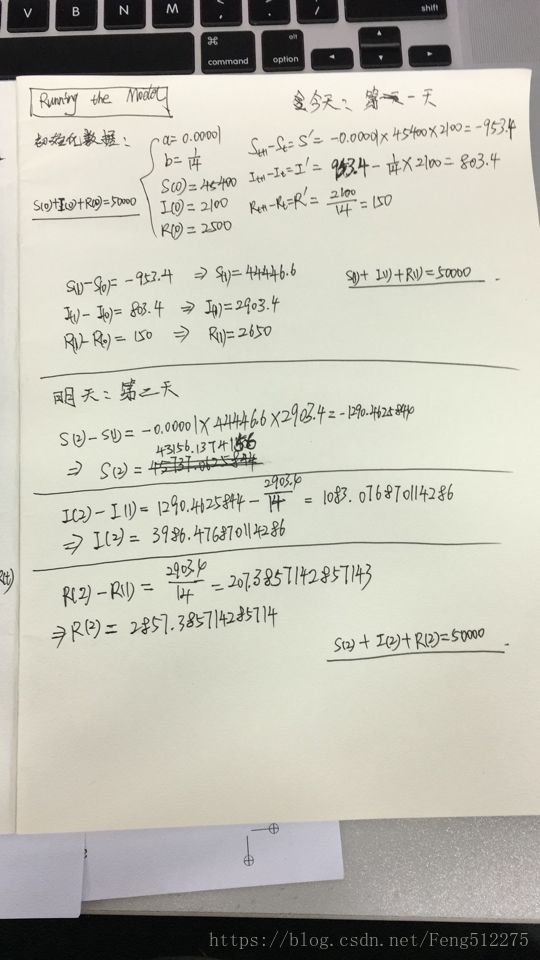 V B N M < , > . ? / shift
⌘ command
alt option
Running the Model
今天：第一天
初始化数据：
a=0.00001
b=1/14
S(0)=45400
I(0)=2100
R(0)=2500
S(0)+I(0)+R(0)=50000
St+1-St=S'=-0.00001×45400×2100=-953.4
It+1-It=I'=953.4-1/14×2100=803.4
Rt+1-Rt=R'=2100/14=150
S(1)-S(0)=-953.4 ⇒ S(1)=44446.6
I(1)-I(0)=803.4 ⇒ I(1)=2903.4
R(1)-R(0)=150 ⇒ R(1)=2650
S(1)+I(1)+R(1)=50000.
明天：第二天
S(2)-S(1)=-0.00001×44446.6×2903.4=-1290.4625844
43156.1374156
⇒ S(2)=45737.0625844
I(2)-I(1)=1290.4625844-2903.4/14=1083.076870114286
⇒ I(2)=3986.476870114286
R(2)-R(1)=2903.4/14=207.3857142857143
⇒ R(2)=2857.385714285714
S(2)+I(2)+R(2)=50000.
R(t)
https://blog.csdn.net/Feng512275